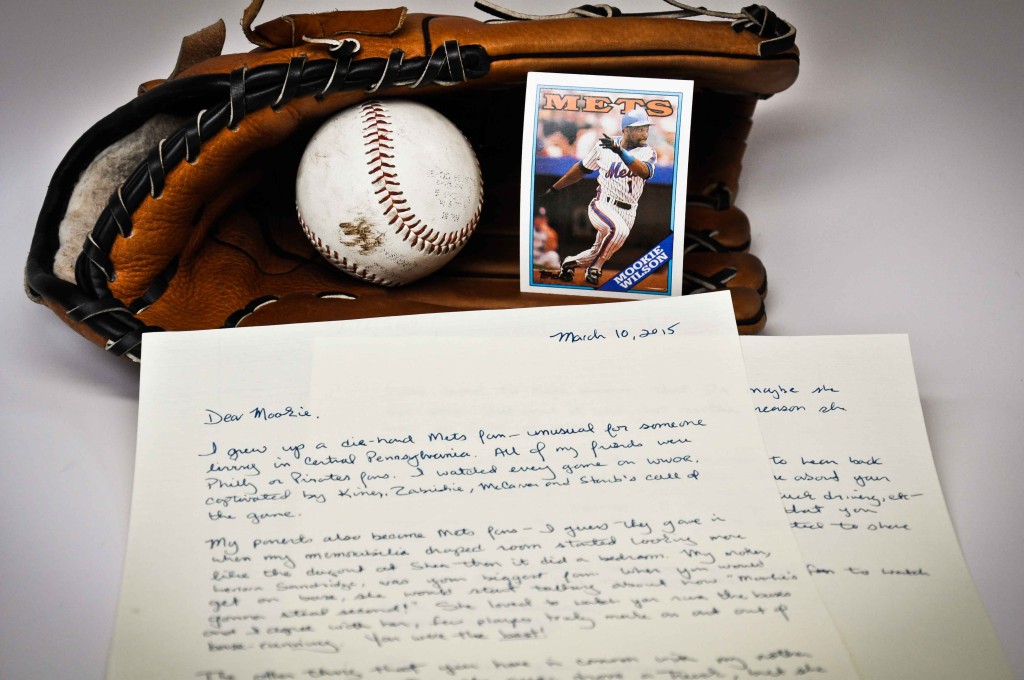 METS
Mets
1
MOOKIE
WILSON
March 10, 2015
Dear Mookie,
I grew up a die-hard Mets fan - unusual for someone
living in Central Pennsylvania. All of my friends were
Philly or Pirates fans. I watched every game on WWOR,
captivated by Kiner, Zabriskie, McCarver and Staub's call of
the game.
My parents also became Mets fans - I guess they gave in
when my memorabilia draped room started looking more
like the dugout at Shea than it did a bedroom. My mother,
was your biggest fan. When you would
get on base, she would start talking about how "Mookie's
gonna steal second!" She loved to watch you run the bases
and I agree with her, few players truly made an art out of
base-running. You were the best!
The other thing that you have in common with my mother
drove a truck, but she
maybe she
reason she
to hear back
about your
truck driving, etc -
that you
to share
fan to watch